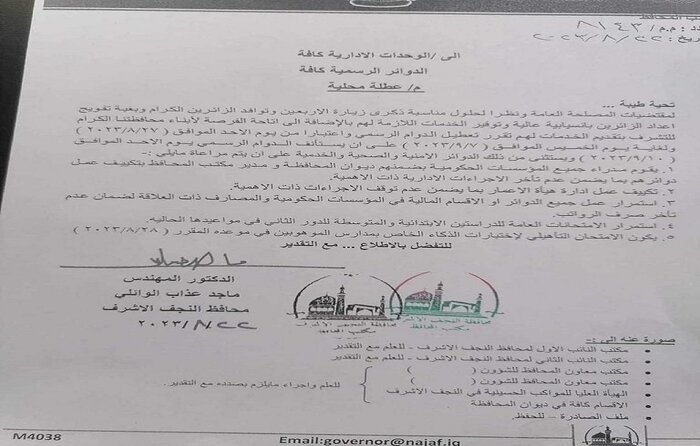 المحافظ
٨١٤٣
٢٠٢٣/٨/٢٢
الى /الوحدات الادارية كافة
الدوائر الرسمية كافة
م/ عطلة محلية
تحية طيبة ...
لمقتضيات المصلحة العامة ونظرا لحلول مناسبة ذكرى زيارة الاربعين وتوافد الزائرين الكرام وبغية تفويج
اعداد الزائرين بانسيابية عالية وتوفير الخدمات اللازمة لهم بالإضافة الى اتاحة الفرصة لأبناء محافظتنا الكرام
للتشرف بتقديم الخدمات لهم تقرر تعطيل الدوام الرسمي واعتبارا من يوم الاحد الموافق (٢٠٢٣/٨/٢٧)
ولغاية يوم الخميس الموافق (٢٠٢٣/٩/٧) على ان يستأنف الدوام الرسمي يوم الاحد الموافق
(٢٠٢٣/٩/١٠) ويستثنى من ذلك الدوائر الامنية والصحية والخدمية على ان يتم مراعاة مايلي:-
١. يقوم مدراء جميع المؤسسات الحكومية بضمنهم ديوان المحافظة و مدير مكتب المحافظ بتكييف عمل
دوائرهم بما يضمن عدم تأخر الاجراءات الادارية ذات الاهمية.
٢. تكييف عمل ادارة هيأة الاعمار بما يضمن عدم توقف الاجراءات ذات الاهمية.
٣. استمرار عمل جميع الدوائر او الاقسام المالية في المؤسسات الحكومية والمصارف ذات العلاقة لضمان عدم
تأخر صرف الرواتب.
٤. استمرار الامتحانات العامة للدراستين الابتدائية والمتوسطة للدور الثاني في مواعيدها الحالية.
٥. يكون الامتحان التأهيلي لإختبارات الذكاء الخاص بمدارس الموهوبين في موعده المقرر (٢٠٢٣/٨/٢٨)
للتفضل بالاطلاع ... مع التقدير
الدكتور المهندس
ماجد عذاب الوائلي
محافظ النجف الاشرف
٢٠٢٣/٨/٢٢
محافظة النجف الاشرف
مكتب المحافظ
محافظة النجف الاشرف
مكتب المحافظ
صورة عنه الى :-
• مكتب النائب الاول لمحافظ النجف الاشرف - للعلم مع التقدير
• مكتب النائب الثاني لمحافظ النجف الاشرف - للعلم مع التقدير
• مكتب معاون المحافظ للشؤون ( )
• مكتب معاون المحافظ للشؤون ( )
• الهيأة العليا للمواكب الحسينية في النجف الاشرف
للعلم واجراء مايلزم بصدده مع التقدير.
• الاقسام كافة في ديوان المحافظة
• ملف الصادرة - للحفظ.
M4038
Email:governor@najaf.iq